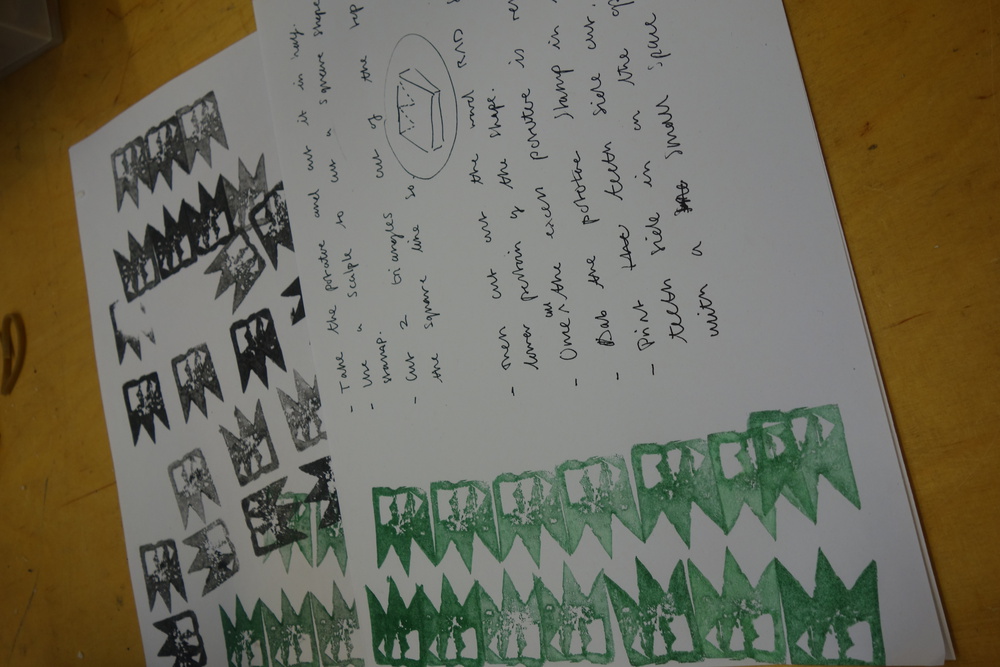 - Take the potatoe and cut it in half.
- Use a scalple to cut a square shape
stamp.
- Cut 2 triangles out of the top
the square line so
- then cut out the word RAD
lower portion of the shape.
- Once all the excess potatoe is
- Dab the potatoe stamp in
- Print the teeth side out.
teeth side in on the
with a small space